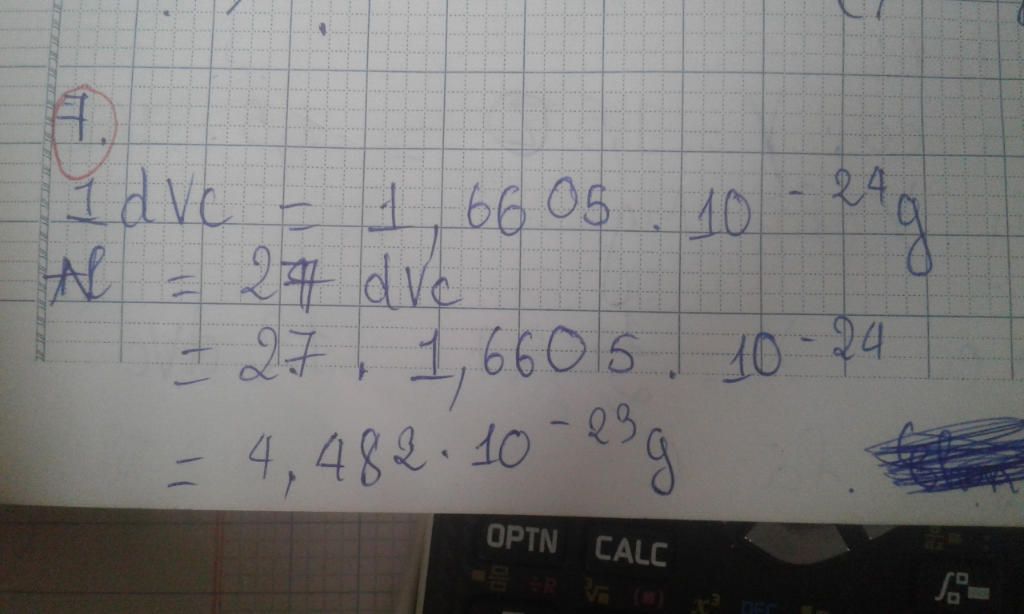 7.
1 dVC = 1,6605 . 10⁻²⁴g
Al = 27 dVc
= 27 . 1,6605 . 10⁻²⁴
= 4,482 . 10⁻²³g
OPTN CALC